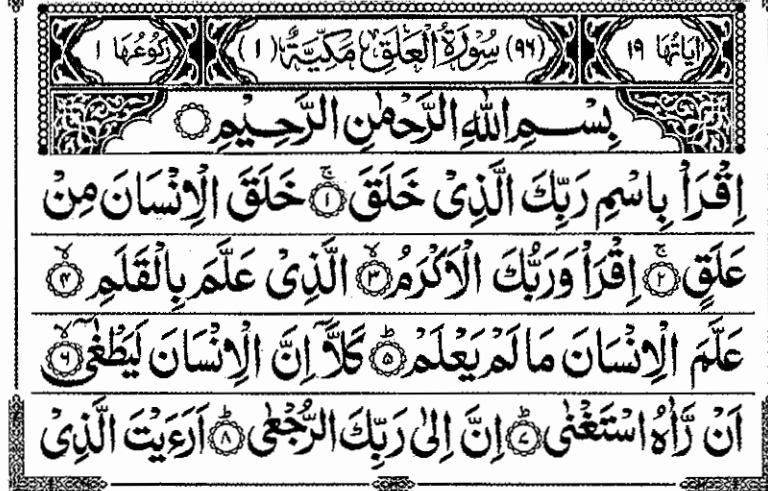 اٰيَاتُهَا ١٩ (٩٦) سُوْرَةُ الْعَلَقِ مَكِّيَّةٌ (١) رُكُوْعُهَا ١
بِسْمِ اللّٰهِ الرَّحْمٰنِ الرَّحِيْمِ
اِقْرَاْ بِاسْمِ رَبِّكَ الَّذِیْ خَلَقَ ۚ‏ ١ خَلَقَ الْاِنْسَانَ مِنْ
عَلَقٍ ۚ‏ ٢ اِقْرَاْ وَرَبُّكَ الْاَكْرَمُ ۙ‏ ٣ الَّذِیْ عَلَّمَ بِالْقَلَمِ ۙ‏ ۴
عَلَّمَ الْاِنْسَانَ مَا لَمْ يَعْلَمْ ؕ‏ ۵ كَلَّاۤ اِنَّ الْاِنْسَانَ لَيَطْغٰۤى ۙ‏ ٦
اَنْ رَّاٰهُ اسْتَغْنٰى ؕ‏ ٧ اِنَّ اِلٰى رَبِّكَ الرُّجْعٰى ؕ‏ ٨ اَرَءَيْتَ الَّذِیْ